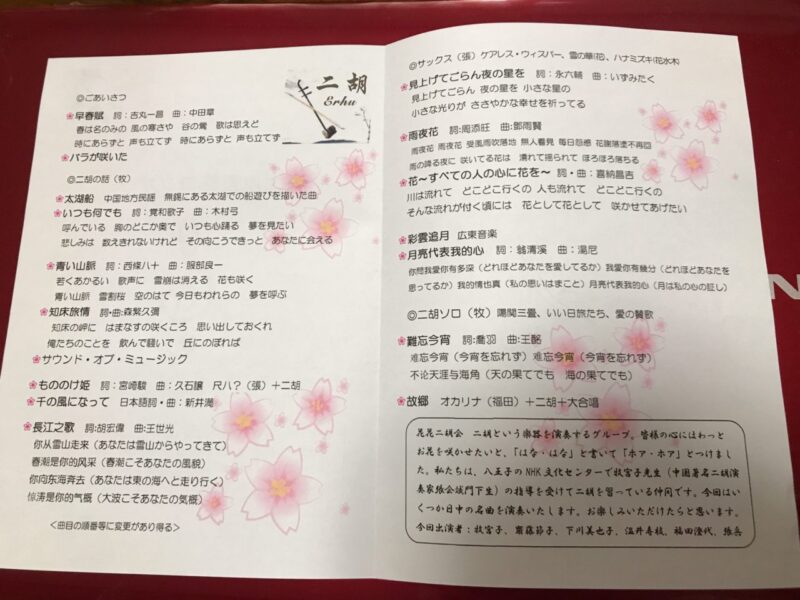 二胡
Erhu
◎ごあいさつ
早春賦 詞:吉丸一昌 曲:中田章
春は名のみの 風の寒さや 谷の鶯 歌は思えど
時にあらずと 声も立てず 時にあらずと 声も立てず
バラが咲いた
◎二胡の話(牧)
太湖船 中国地方民謡 無錫にある太湖での船遊びを描いた曲
いつも何でも 詞:覚和歌子 曲:木村弓
呼んでいる 胸のどこか奥で いつも心踊る 夢を見たい
悲しみは 数えきれないけれど その向こうできっと あなたに会える
青い山脈 詞:西條八十 曲:服部良一
若くあかるい 歌声に 雪崩は消える 花も咲く
青い山脈 雪割桜 空のはて 今日もわれらの 夢を呼ぶ
知床旅情 詞・曲:森繁久彌
知床の岬に はまなすの咲くころ 思い出しておくれ
俺たちのことを 飲んで騒いで 丘にのぼれば
サウンド・オブ・ミュージック
もののけ姫 詞:宮崎駿 曲:久石譲 尺八?(張)+二胡
千の風になって 日本語詞・曲:新井満
長江之歌 詞:胡宏偉 曲:王世光
你从雪山走来(あなたは雪山からやってきて)
春潮是你的风采(春潮こそあなたの風貌)
你向东海奔去(あなたは東の海へと走り行く)
惊涛是你的气概(大波こそあなたの気概)
<曲目の順番等に変更があり得る>
◎サックス(張)ケアレス・ウィスパー、雪の華(花)、ハナミズキ(花水木)
見上げてごらん夜の星を 詞:永六輔 曲:いずみたく
見上げてごらん 夜の星を 小さな星の
小さな光りが ささやかな幸せを祈ってる
雨夜花 詞:周添旺 曲:鄧雨賢
雨夜花 雨夜花 受風雨吹落地 無人看見 毎日怨嗟 花謝落塗不再回
雨の降る夜に 咲いてる花は 濡れて揺られて ほろほろ落ちる
花~すべての人の心に花を~ 詞・曲:喜納昌吉
川は流れて どこどこ行くの 人も流れて どこどこ行くの
そんな流れが付く頃には 花として花として 咲かせてあげたい
彩雲追月 広東音楽
月亮代表我的心 詞:翁清溪 曲:湯尼
你問我愛你有多深(どれほどあなたを愛してるか)我愛你有幾分(どれほどあなたを
思ってるか)我的情也真(私の思いはまこと)月亮代表我的心(月は私の心の証し)
◎二胡ソロ(牧)陽関三畳、いい日旅たち、愛の賛歌
難忘今宵 詞:喬羽 曲:王酩
难忘今宵(今宵を忘れず)难忘今宵(今宵を忘れず)
不论天涯与海角(天の果てでも 海の果てでも)
故郷 オカリナ(福田)+二胡+大合唱
花花二胡会 二胡という楽器を演奏するグループ。皆様の心にはわっと
お花を咲かせたいと、「はな・はな」と書いて「ホア・ホア」とつけまし
た。私たちは、八王子のNHK文化センターで牧宮子先生(中国著名二胡演
奏家張会議門下生)の指導を受けて二胡を習っている仲間です。今回はい
くつか日中の名曲を演奏いたします。お楽しみいただけたらと思います。
今回出演者:牧宮子、齋藤節子、下川美也子、温井寿枝、福田澄代、張兵